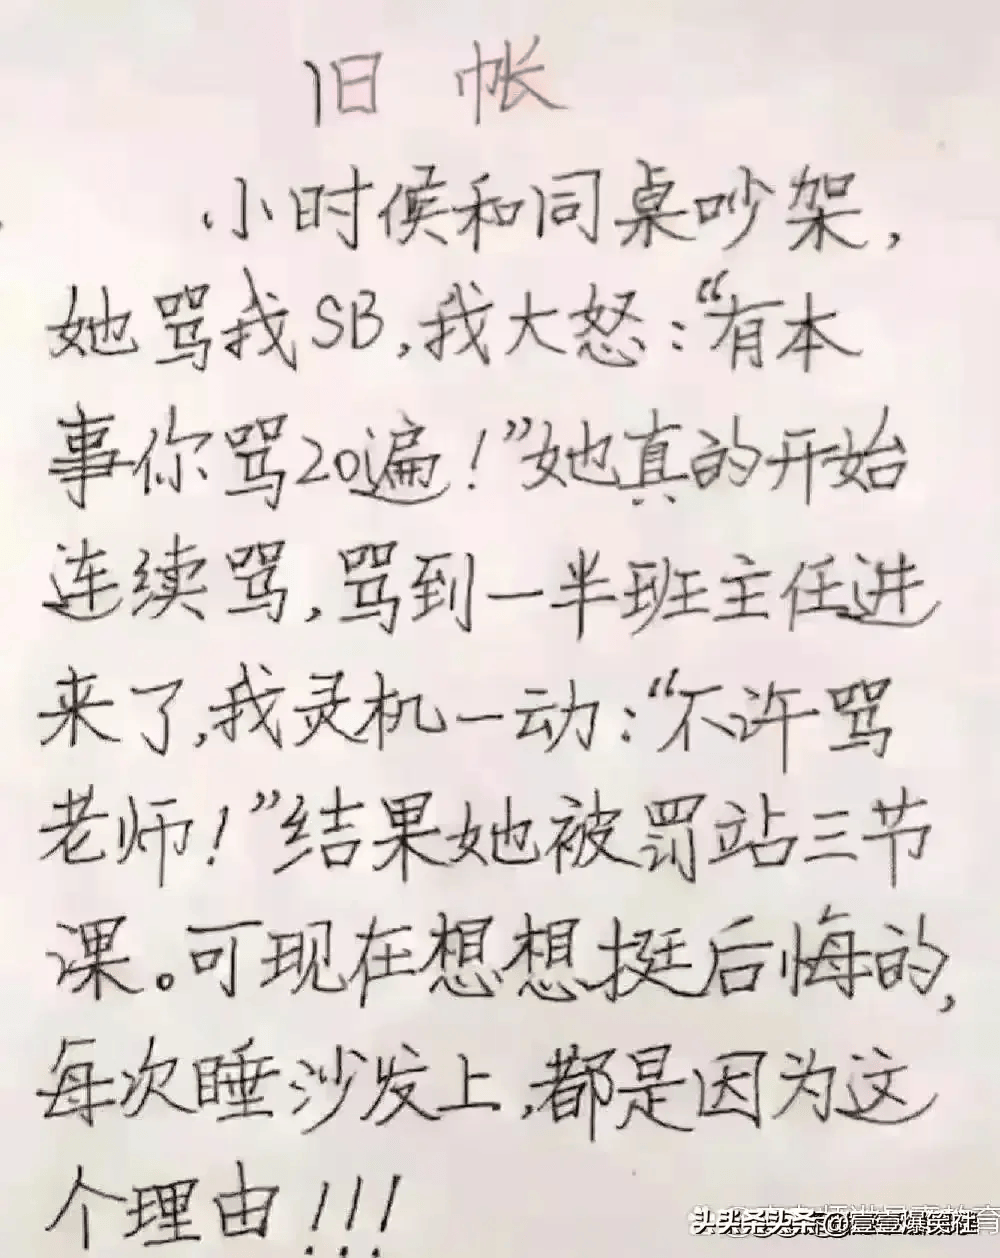 旧帐
小时候和同桌吵架，
她骂我SB，我大怒：“有本
事你骂20遍！”她真的开始
连续骂，骂到一半班主任进
来了，我灵机一动：“不许骂
老师！”结果她被罚站三节
课。可现在想想挺后悔的，
每次睡沙发上，都是因为这
个理由！！！
头条@壹壹爆笑社